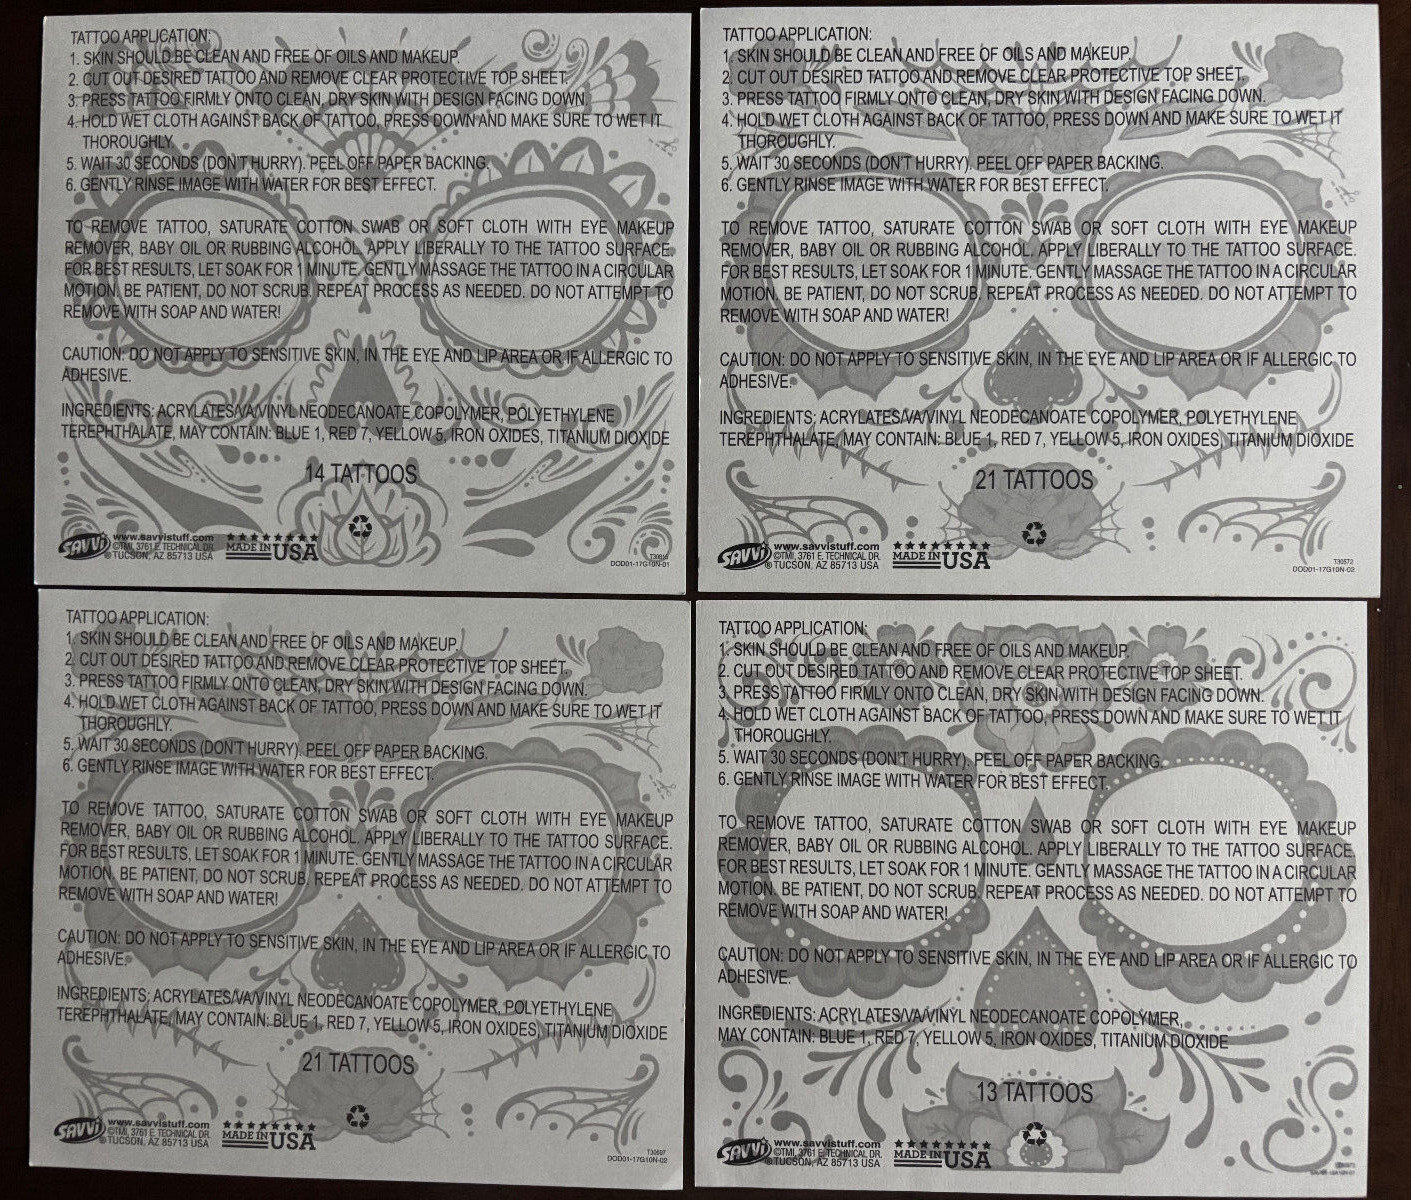 TATTOO APPLICATION:
1. SKIN SHOULD BE CLEAN AND FREE OF OILS AND MAKEUP.
2. CUT OUT DESIRED TATTOO AND REMOVE CLEAR PROTECTIVE TOP SHEET.
3. PRESS TATTOO FIRMLY ONTO CLEAN, DRY SKIN WITH DESIGN FACING DOWN.
4. HOLD WET CLOTH AGAINST BACK OF TATTOO, PRESS DOWN AND MAKE SURE TO WET IT
THOROUGHLY.
5. WAIT 30 SECONDS (DON'T HURRY). PEEL OFF PAPER BACKING.
6. GENTLY RINSE IMAGE WITH WATER FOR BEST EFFECT.
TO REMOVE TATTOO, SATURATE COTTON SWAB OR SOFT CLOTH WITH EYE MAKEUP
REMOVER, BABY OIL OR RUBBING ALCOHOL. APPLY LIBERALLY TO THE TATTOO SURFACE.
FOR BEST RESULTS, LET SOAK FOR 1 MINUTE. GENTLY MASSAGE THE TATTOO IN A CIRCULAR
MOTION. BE PATIENT, DO NOT SCRUB. REPEAT PROCESS AS NEEDED. DO NOT ATTEMPT TO
REMOVE WITH SOAP AND WATER!
CAUTION: DO NOT APPLY TO SENSITIVE SKIN, IN THE EYE AND LIP AREA OR IF ALLERGIC TO
ADHESIVE.
INGREDIENTS: ACRYLATES/VA/VINYL NEODECANOATE COPOLYMER, POLYETHYLENE
TEREPHTHALATE, MAY CONTAIN: BLUE 1, RED 7, YELLOW 5, IRON OXIDES, TITANIUM DIOXIDE
14 TATTOOS
SAVVI
www.savvistuff.com
©TMI, 3761 E. TECHNICAL DR.
® TUCSON, AZ 85713 USA
MADE IN USA
DOD01-17G10N-01
TATTOO APPLICATION:
1. SKIN SHOULD BE CLEAN AND FREE OF OILS AND MAKEUP.
2. CUT OUT DESIRED TATTOO AND REMOVE CLEAR PROTECTIVE TOP SHEET.
3. PRESS TATTOO FIRMLY ONTO CLEAN, DRY SKIN WITH DESIGN FACING DOWN.
4. HOLD WET CLOTH AGAINST BACK OF TATTOO, PRESS DOWN AND MAKE SURE TO WET IT
THOROUGHLY.
5. WAIT 30 SECONDS (DON'T HURRY). PEEL OFF PAPER BACKING.
6. GENTLY RINSE IMAGE WITH WATER FOR BEST EFFECT.
TO REMOVE TATTOO, SATURATE COTTON SWAB OR SOFT CLOTH WITH EYE MAKEUP
REMOVER, BABY OIL OR RUBBING ALCOHOL. APPLY LIBERALLY TO THE TATTOO SURFACE.
FOR BEST RESULTS, LET SOAK FOR 1 MINUTE. GENTLY MASSAGE THE TATTOO IN A CIRCULAR
MOTION. BE PATIENT, DO NOT SCRUB. REPEAT PROCESS AS NEEDED. DO NOT ATTEMPT TO
REMOVE WITH SOAP AND WATER!
CAUTION: DO NOT APPLY TO SENSITIVE SKIN, IN THE EYE AND LIP AREA OR IF ALLERGIC TO
ADHESIVE.
INGREDIENTS: ACRYLATES/VA/VINYL NEODECANOATE COPOLYMER, POLYETHYLENE
TEREPHTHALATE, MAY CONTAIN: BLUE 1, RED 7, YELLOW 5, IRON OXIDES, TITANIUM DIOXIDE
21 TATTOOS
SAVVI
www.savvistuff.com
©TMI, 3761 E. TECHNICAL DR.
® TUCSON, AZ 85713 USA
MADE IN USA
T30572
DOD01-17G10N-02
TATTOO APPLICATION:
1. SKIN SHOULD BE CLEAN AND FREE OF OILS AND MAKEUP.
2. CUT OUT DESIRED TATTOO AND REMOVE CLEAR PROTECTIVE TOP SHEET.
3. PRESS TATTOO FIRMLY ONTO CLEAN, DRY SKIN WITH DESIGN FACING DOWN.
4. HOLD WET CLOTH AGAINST BACK OF TATTOO, PRESS DOWN AND MAKE SURE TO WET IT
THOROUGHLY.
5. WAIT 30 SECONDS (DON'T HURRY). PEEL OFF PAPER BACKING.
6. GENTLY RINSE IMAGE WITH WATER FOR BEST EFFECT.
TO REMOVE TATTOO, SATURATE COTTON SWAB OR SOFT CLOTH WITH EYE MAKEUP
REMOVER, BABY OIL OR RUBBING ALCOHOL. APPLY LIBERALLY TO THE TATTOO SURFACE.
FOR BEST RESULTS, LET SOAK FOR 1 MINUTE. GENTLY MASSAGE THE TATTOO IN A CIRCULAR
MOTION. BE PATIENT, DO NOT SCRUB. REPEAT PROCESS AS NEEDED. DO NOT ATTEMPT TO
REMOVE WITH SOAP AND WATER!
CAUTION: DO NOT APPLY TO SENSITIVE SKIN, IN THE EYE AND LIP AREA OR IF ALLERGIC TO
ADHESIVE.
INGREDIENTS: ACRYLATES/VA/VINYL NEODECANOATE COPOLYMER, POLYETHYLENE
TEREPHTHALATE, MAY CONTAIN: BLUE 1, RED 7, YELLOW 5, IRON OXIDES, TITANIUM DIOXIDE
21 TATTOOS
SAVVI
www.savvistuff.com
©TMI, 3761 E. TECHNICAL DR.
® TUCSON, AZ 85713 USA
MADE IN USA
DOD01-17G10N-02
TATTOO APPLICATION:
1. SKIN SHOULD BE CLEAN AND FREE OF OILS AND MAKEUP.
2. CUT OUT DESIRED TATTOO AND REMOVE CLEAR PROTECTIVE TOP SHEET.
3. PRESS TATTOO FIRMLY ONTO CLEAN, DRY SKIN WITH DESIGN FACING DOWN.
4. HOLD WET CLOTH AGAINST BACK OF TATTOO, PRESS DOWN AND MAKE SURE TO WET IT
THOROUGHLY.
5. WAIT 30 SECONDS (DON'T HURRY). PEEL OFF PAPER BACKING.
6. GENTLY RINSE IMAGE WITH WATER FOR BEST EFFECT.
TO REMOVE TATTOO, SATURATE COTTON SWAB OR SOFT CLOTH WITH EYE MAKEUP
REMOVER, BABY OIL OR RUBBING ALCOHOL. APPLY LIBERALLY TO THE TATTOO SURFACE.
FOR BEST RESULTS, LET SOAK FOR 1 MINUTE. GENTLY MASSAGE THE TATTOO IN A CIRCULAR
MOTION. BE PATIENT, DO NOT SCRUB. REPEAT PROCESS AS NEEDED. DO NOT ATTEMPT TO
REMOVE WITH SOAP AND WATER!
CAUTION: DO NOT APPLY TO SENSITIVE SKIN, IN THE EYE AND LIP AREA OR IF ALLERGIC TO
ADHESIVE.
INGREDIENTS: ACRYLATES/VA/VINYL NEODECANOATE COPOLYMER,
MAY CONTAIN: BLUE 1, RED 7, YELLOW 5, IRON OXIDES, TITANIUM DIOXIDE
13 TATTOOS
SAVVI
www.savvistuff.com
©TMI, 3761 E. TECHNICAL DR.
® TUCSON, AZ 85713 USA
MADE IN USA